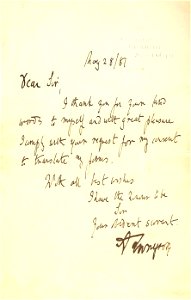 Aug 28/81
Dear Sir,
I thank you for your kind
words to myself and with great pleasure
I comply with your request for my consent
to translate my poems.
With all best wishes
I have the honour to be
Sir
Your obedient servant
A Tennyson